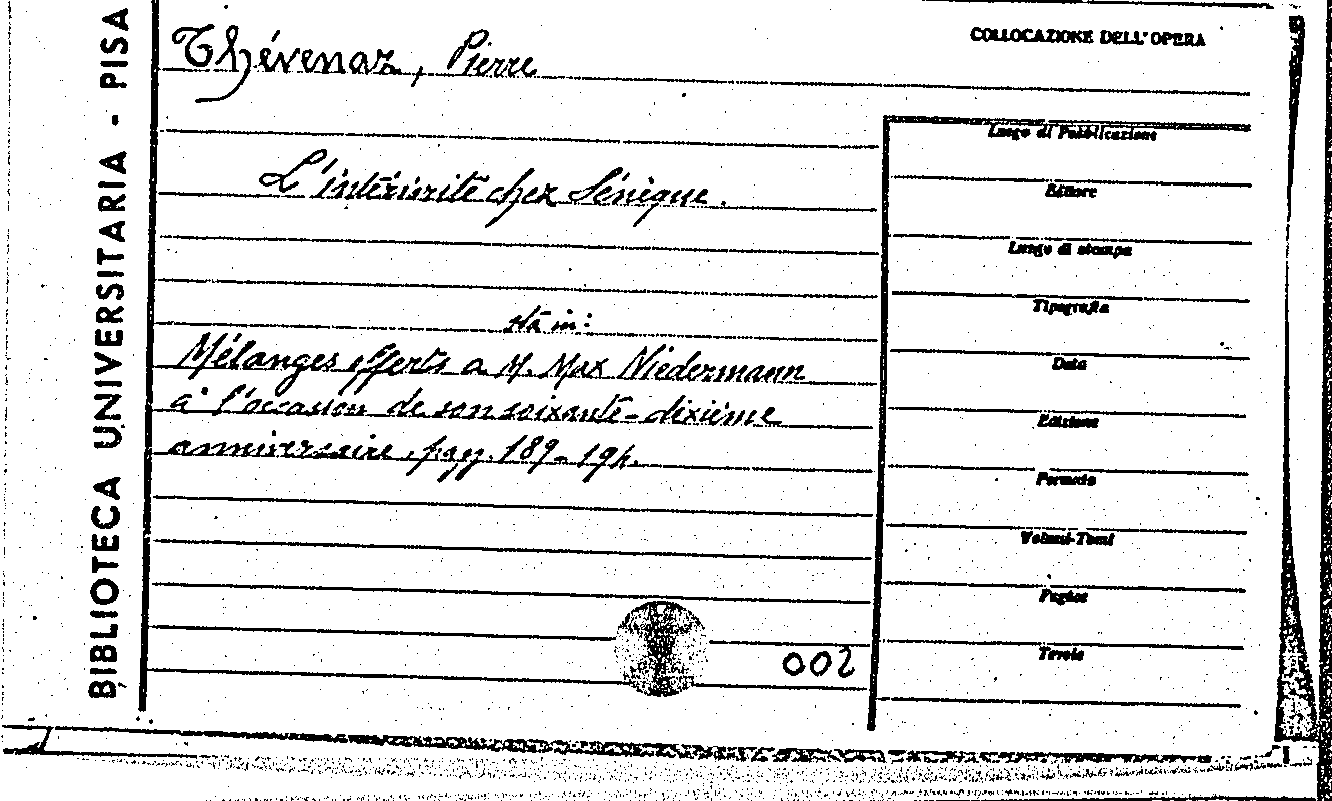 BIBLIOTECA UNIVERSITARIA - PISA
Thévenaz, Pierre
COLLOCAZIONE DELL'OPERA
L'intériorité chez Sénèque.
sta in:
Mélanges offerts a M. Max Niedermann
à l'occasion de son soixante-dixième
anniversaire, pagg. 189-194.
002
Luogo di Pubblicazione
Editore
Luogo di stampa
Tipografia
Data
Edizione
Formato
Volumi-Tomi
Pagine
Tavole